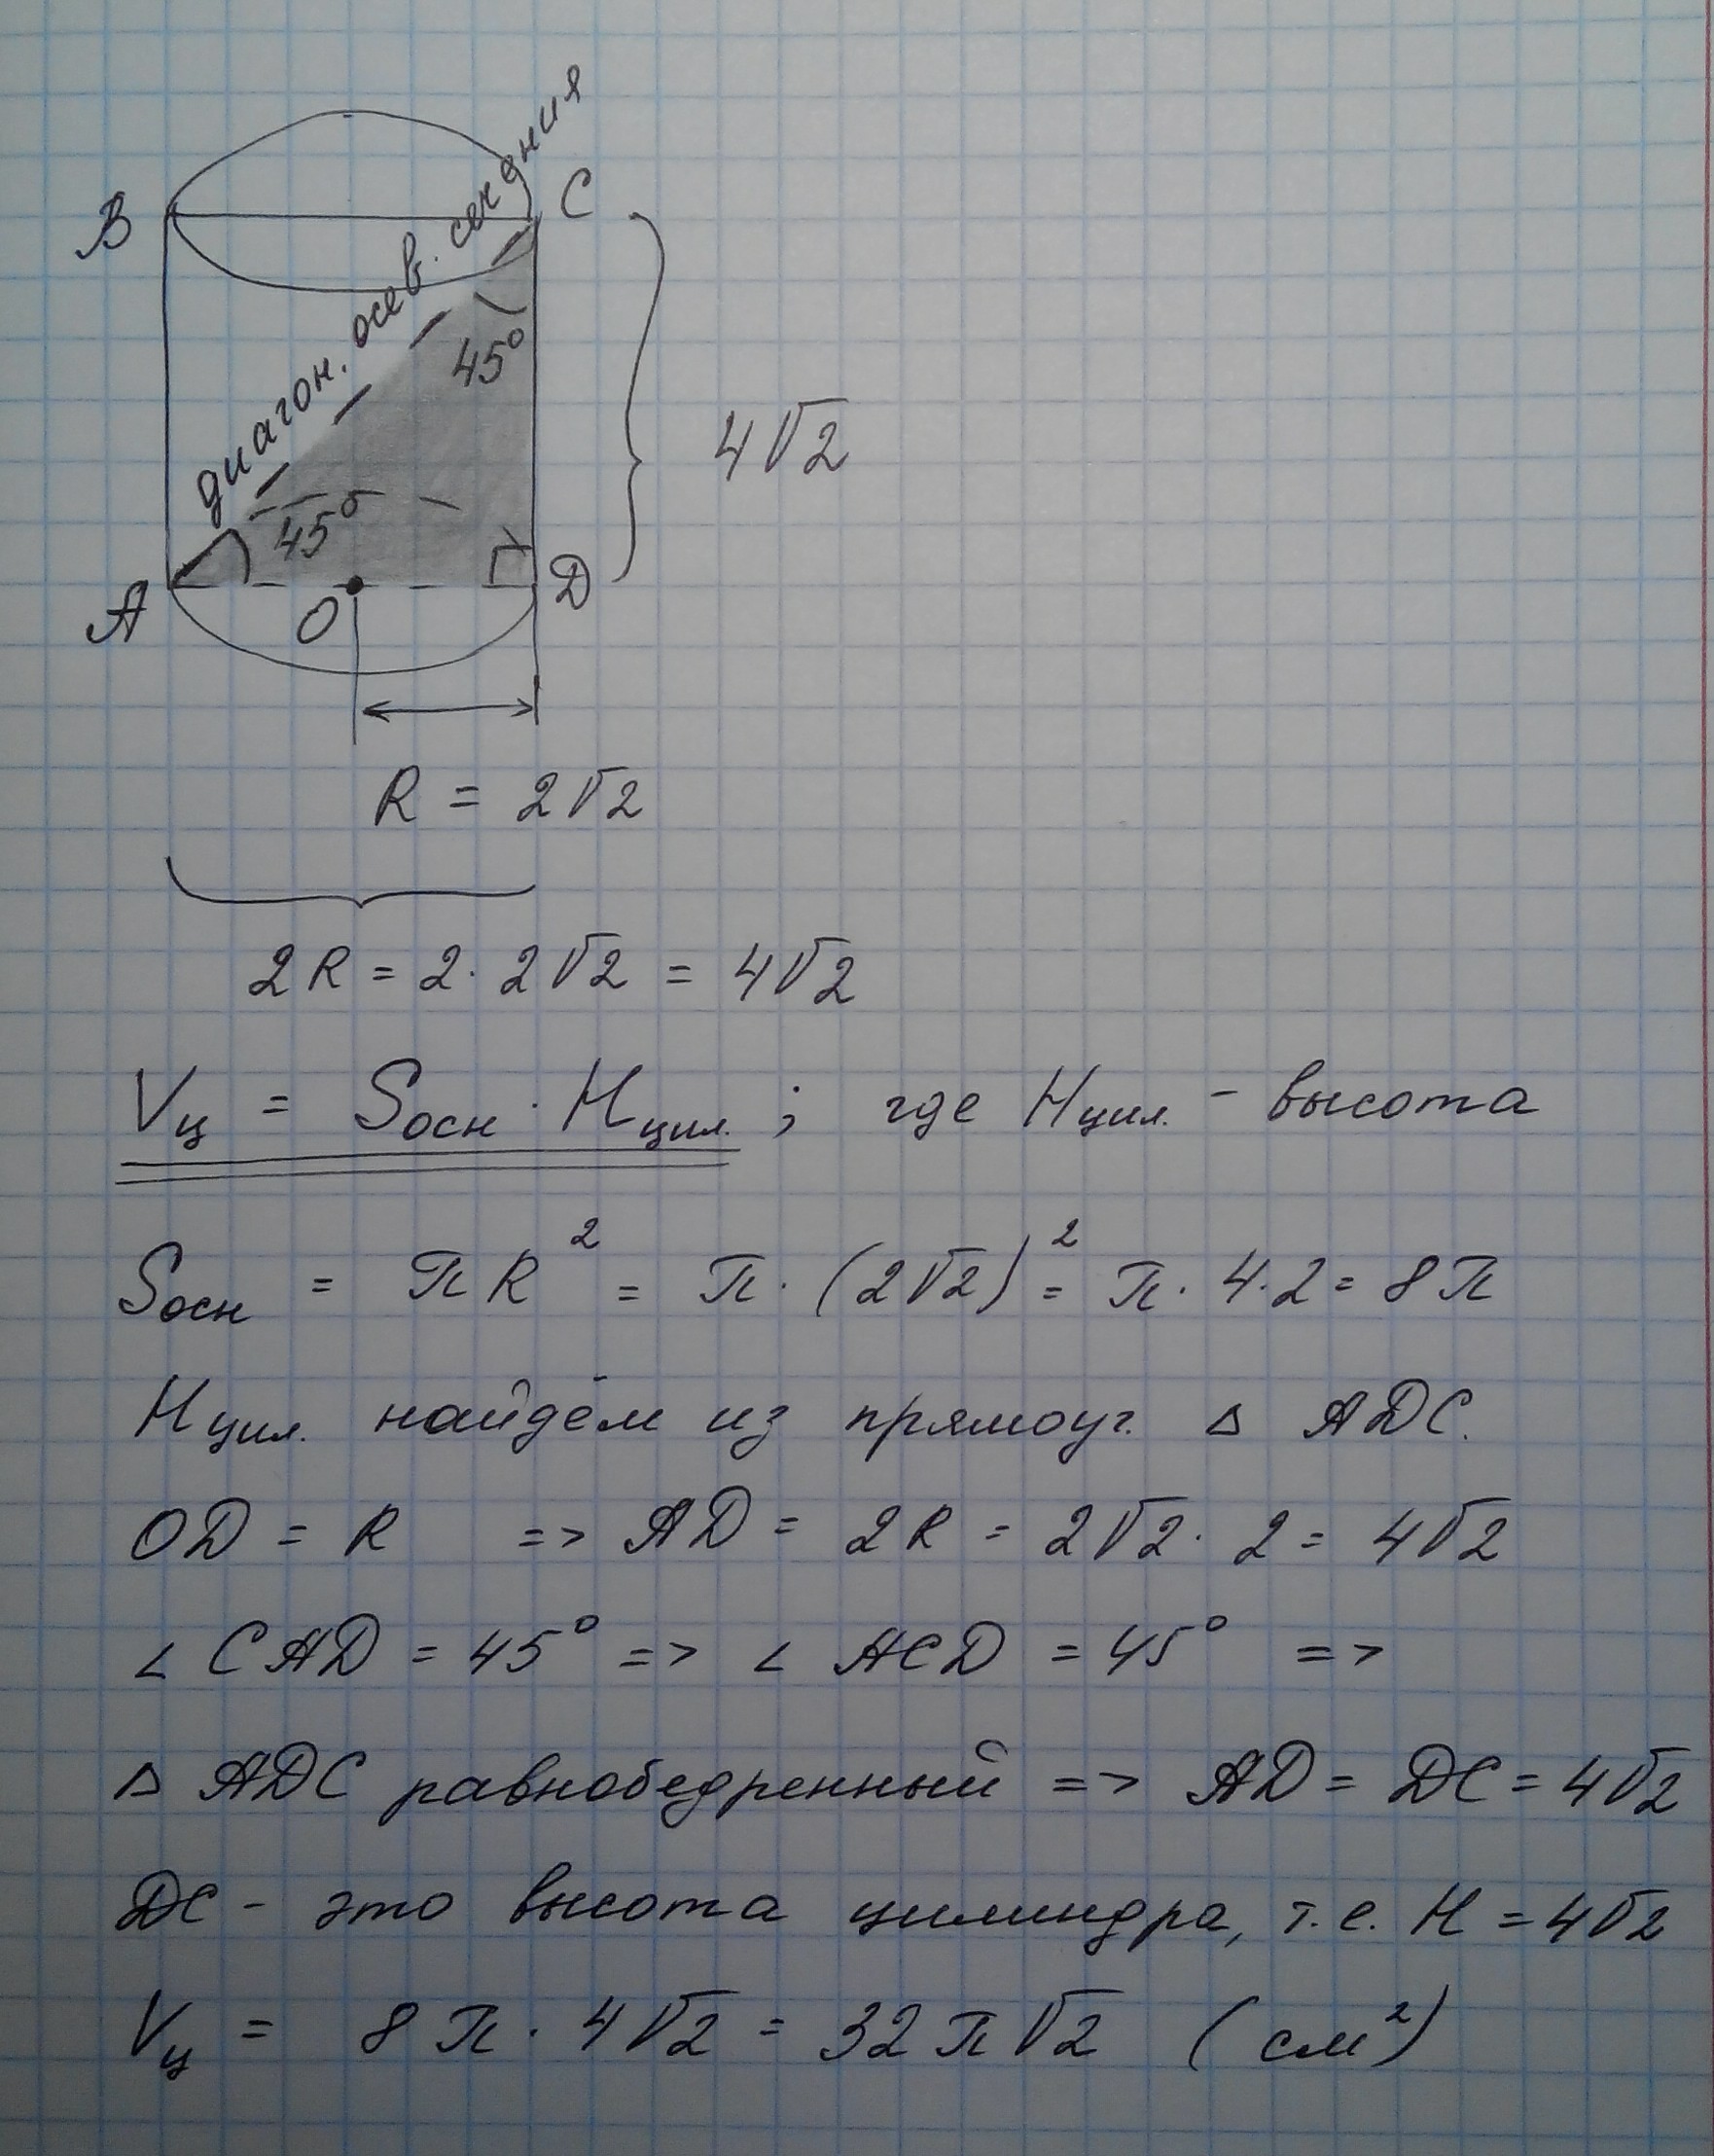 B
C
диагон. осев. сечения
45°
4√2
45°
A
O
D
R = 2√2
2R = 2 · 2√2 = 4√2
Vц = Sосн · Hцил. ; где Hцил. - высота
Sосн = πR² = π · (2√2)² = π · 4 · 2 = 8π
Hцил. найдём из прямоуг. Δ ADC.
OD = R => AD = 2R = 2√2 · 2 = 4√2
∠ CAD = 45° => ∠ ACD = 45° =>
Δ ADC равнобедренный => AD = DC = 4√2
DC - это высота цилиндра, т.е. H = 4√2
Vц = 8π · 4√2 = 32π√2 (см²)